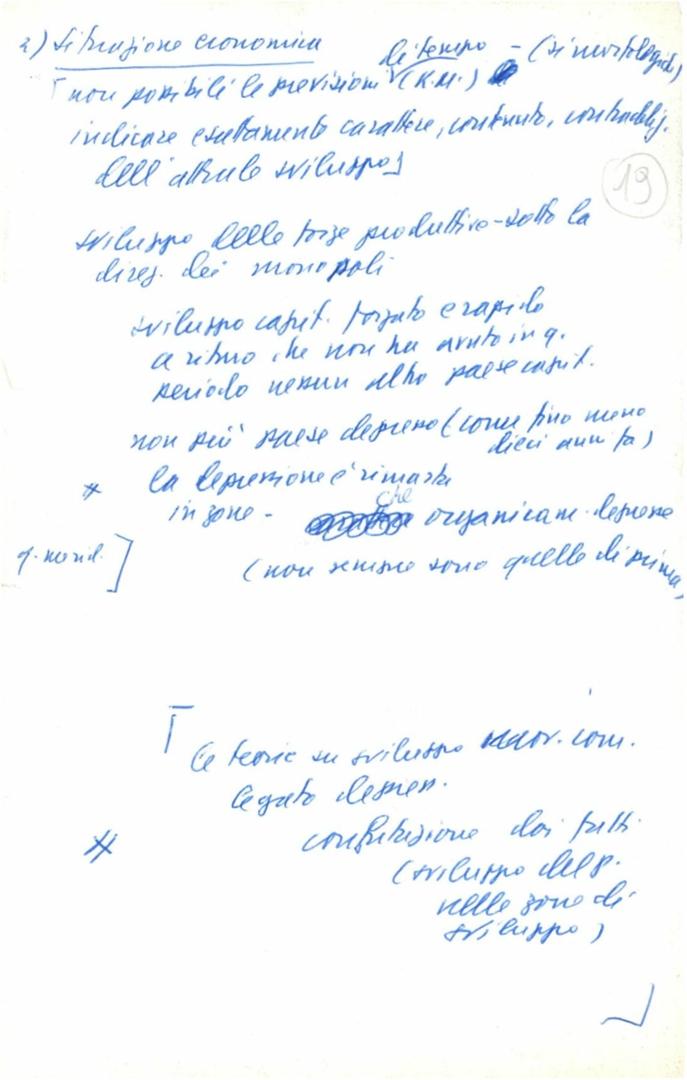 2) Situazione economica
di tempo - (sintomatologiche)
[non possibili le previsioni (K.M.)
indicare esattamente carattere, contenuto, contradiz.
dell'attuale sviluppo]
19
sviluppo delle forze produttive - sotto la
direz. dei monopoli
sviluppo capit. forzato e rapido
a ritmo che non ha avuto in q.
periodo nessun altro paese capit.
non più paese depresso (come fino meno
dieci anni fa)
* la depressione è rimasta
in zone - che organicam. depresse
q. merid. ]
(non sempre sono quelle di prima)
[ le teorie su sviluppo mov. com.
legato depress.
* confutazione dai fatti
(sviluppo del p.
nelle zone di
sviluppo)
]